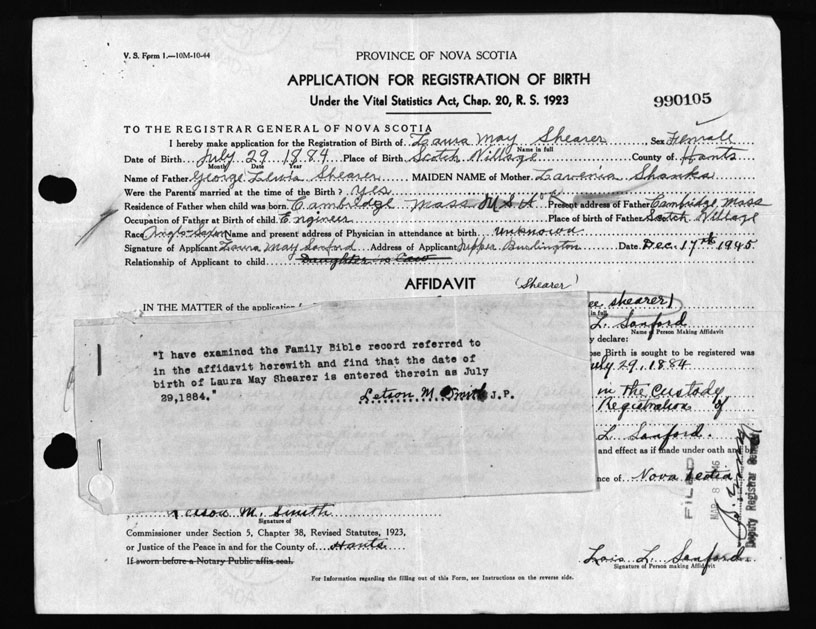 V. S. Form 1.—10M-10-44
PROVINCE OF NOVA SCOTIA
APPLICATION FOR REGISTRATION OF BIRTH
Under the Vital Statistics Act, Chap. 20, R. S. 1923
990105
TO THE REGISTRAR GENERAL OF NOVA SCOTIA
I hereby make application for the Registration of Birth of Laura May Shearer Sex Female
Name in full
Date of Birth July 29 1884 Place of Birth Scotch Village County of Hants
Month Date Year
Name of Father George Lewis Shearer MAIDEN NAME of Mother Lavenia Shanks
Were the Parents married at the time of the Birth? Yes
Residence of Father when child was born Cambridge Mass Present address of Father Cambridge Mass
Occupation of Father at Birth of child Engineer Place of birth of Father Scotch Village
Race Anglo-Saxon Name and present address of Physician in attendance at birth unknown
Signature of Applicant Laura May Sanford Address of Applicant Upper Burlington Date Dec. 17th 1945
Relationship of Applicant to child Daughter in Law
AFFIDAVIT (Shearer)
IN THE MATTER of the application nee Shearer)
in full
L. Sanford
Name of Person Making Affidavit
declare:
Birth is sought to be registered was
July 29, 1884
"I have examined the Family Bible record referred to
in the affidavit herewith and find that the date of
birth of Laura May Shearer is entered therein as July
29,1884."
Letson M. Smith J.P.
in the Custody
Registration of
L. Sanford.
and effect as if made under oath and
of Nova Scotia
FILED
MAR 8
Deputy Registrar General
Letson M. Smith
Signature of
Commissioner under Section 5, Chapter 38, Revised Statutes, 1923,
or Justice of the Peace in and for the County of Hants
If sworn before a Notary Public affix seal.
Lois L. Sanford
Signature of Person making Affidavit
For Information regarding the filling out of this Form, see Instructions on the reverse side.